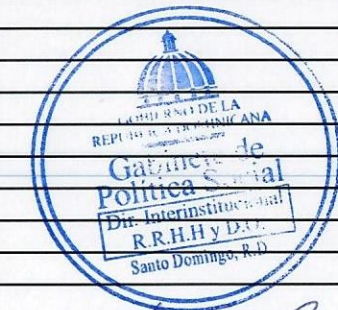 GOBIERNO DE LA
REPÚBLICA DOMINICANA
Gabinete de
Política Social
Dir. Interinstitucional
R.R.H.H y D.O.
Santo Domingo, R.D